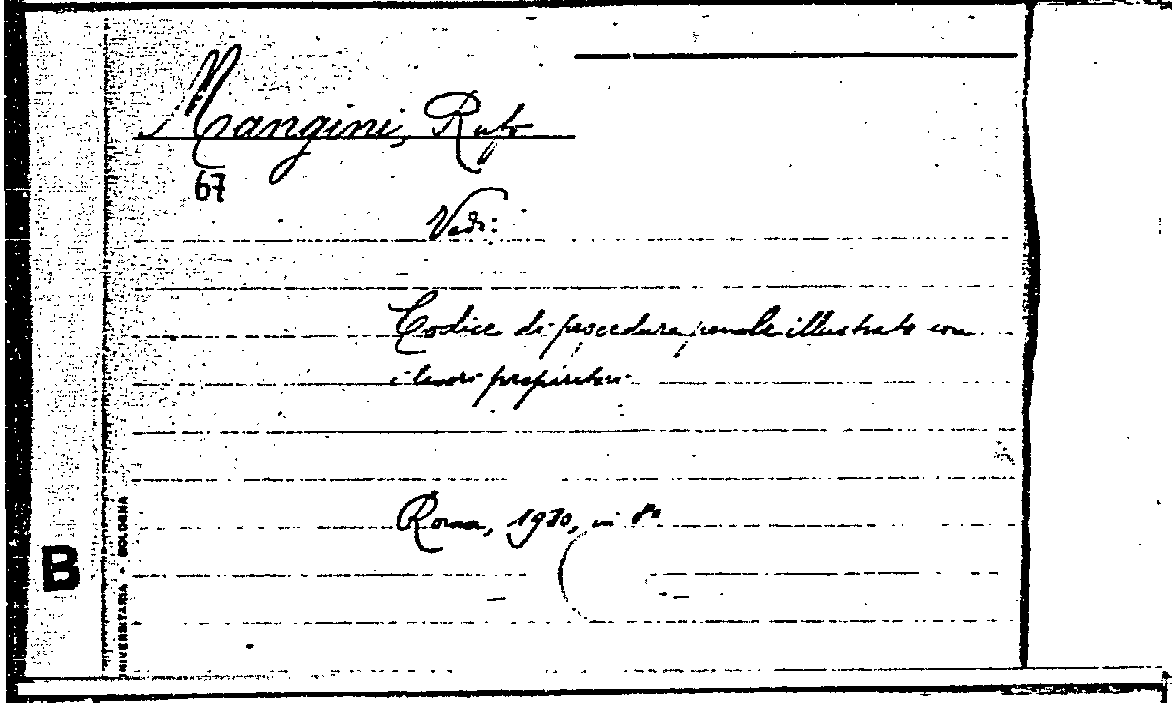 Mangini, Rufo
67
Vedi:
Codice di procedura penale illustrato con
i lavori preparatori
Roma, 1930, in 8°
B
UNIVERSITARIA - BOLOGNA